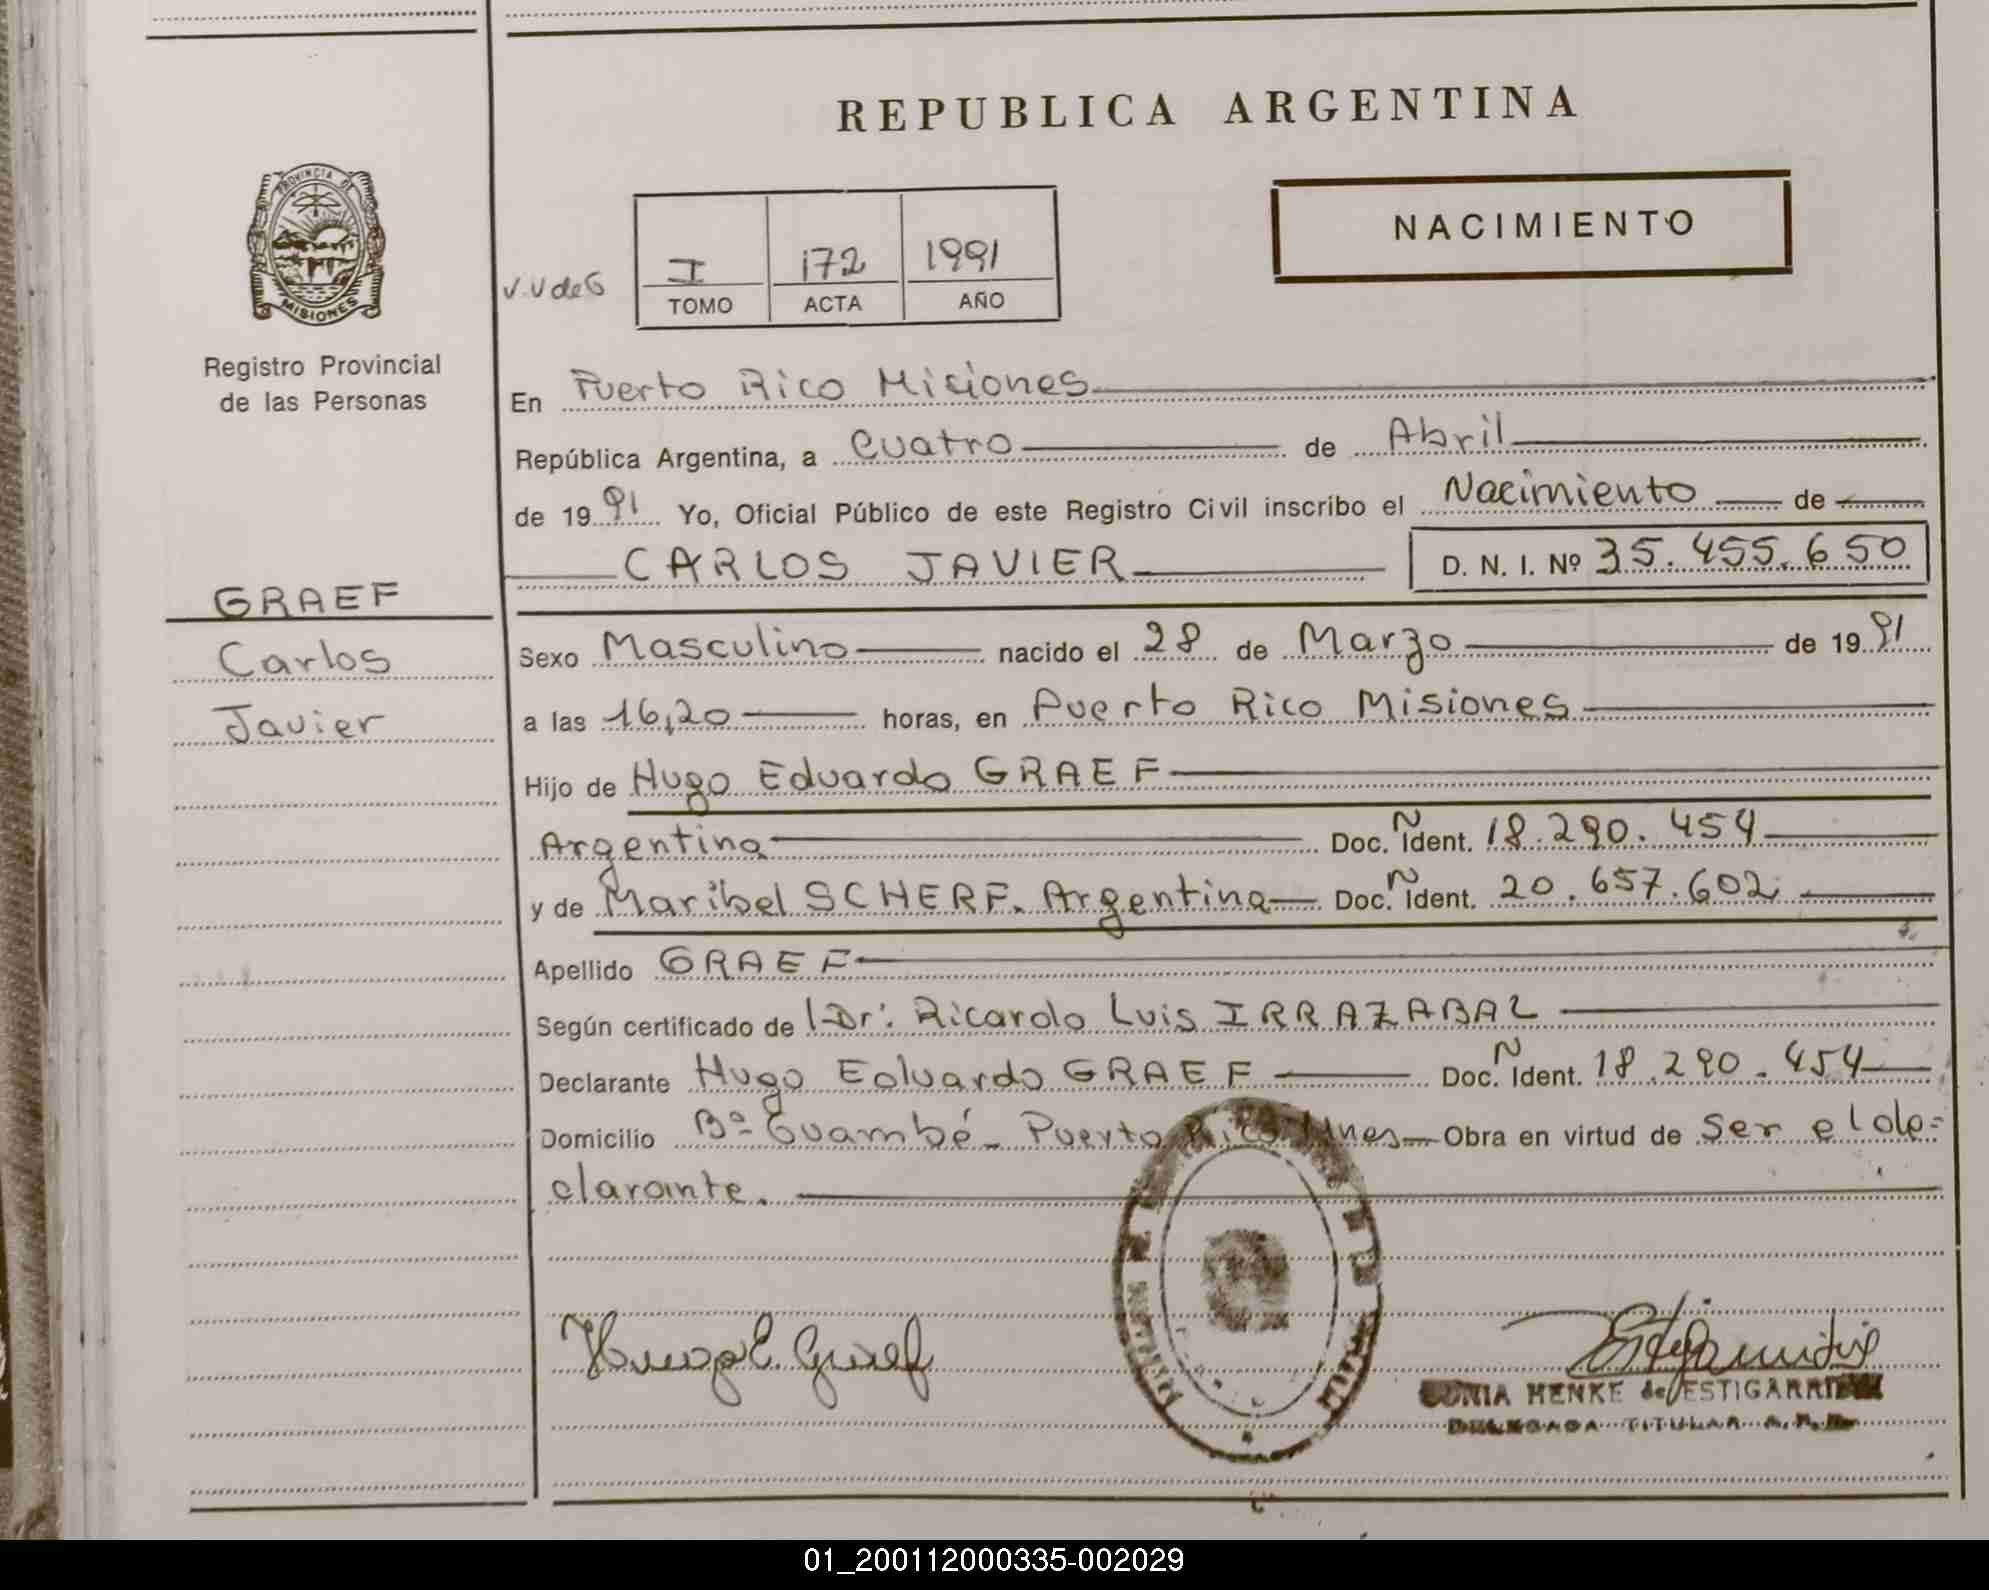 REPUBLICA ARGENTINA
PROVINCIA DE
MISIONES
Registro Provincial
de las Personas
NACIMIENTO
V.V de G
I 172 1991
TOMO ACTA AÑO
En Puerto Rico Misiones
República Argentina, a Cuatro de Abril
de 1991 Yo, Oficial Público de este Registro Civil inscribo el Nacimiento de
CARLOS JAVIER D. N. I. Nº 35.455.650
GRAEF
Carlos
Javier
Sexo Masculino nacido el 28 de Marzo de 1991
a las 16,20 horas, en Puerto Rico Misiones
Hijo de Hugo Eduardo GRAEF
Argentina Doc. N Ident. 18.290.454
y de Maribel SCHERF. Argentina Doc. N Ident. 20.657.602
Apellido GRAEF
Según certificado de Dr: Ricardo Luis IRRAZABAL
Declarante Hugo Eduardo GRAEF Doc. N Ident. 18.290.454
Domicilio Bº Guambé - Puerto Rico Mnes Obra en virtud de Ser el de=
clarante.
Hugo E. Graef
SONIA HENKE de ESTIGARRIBIA
DELEGADA TITULAR
01_200112000335-002029